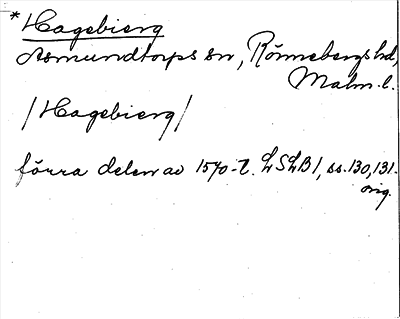 *Hagebierg
Asmundtorps sn, Rönnebergs hd,
Malm. l.
/Hagebierg/
förra delen av 1570-t. LSLB 1, ss. 130, 131.
orig.